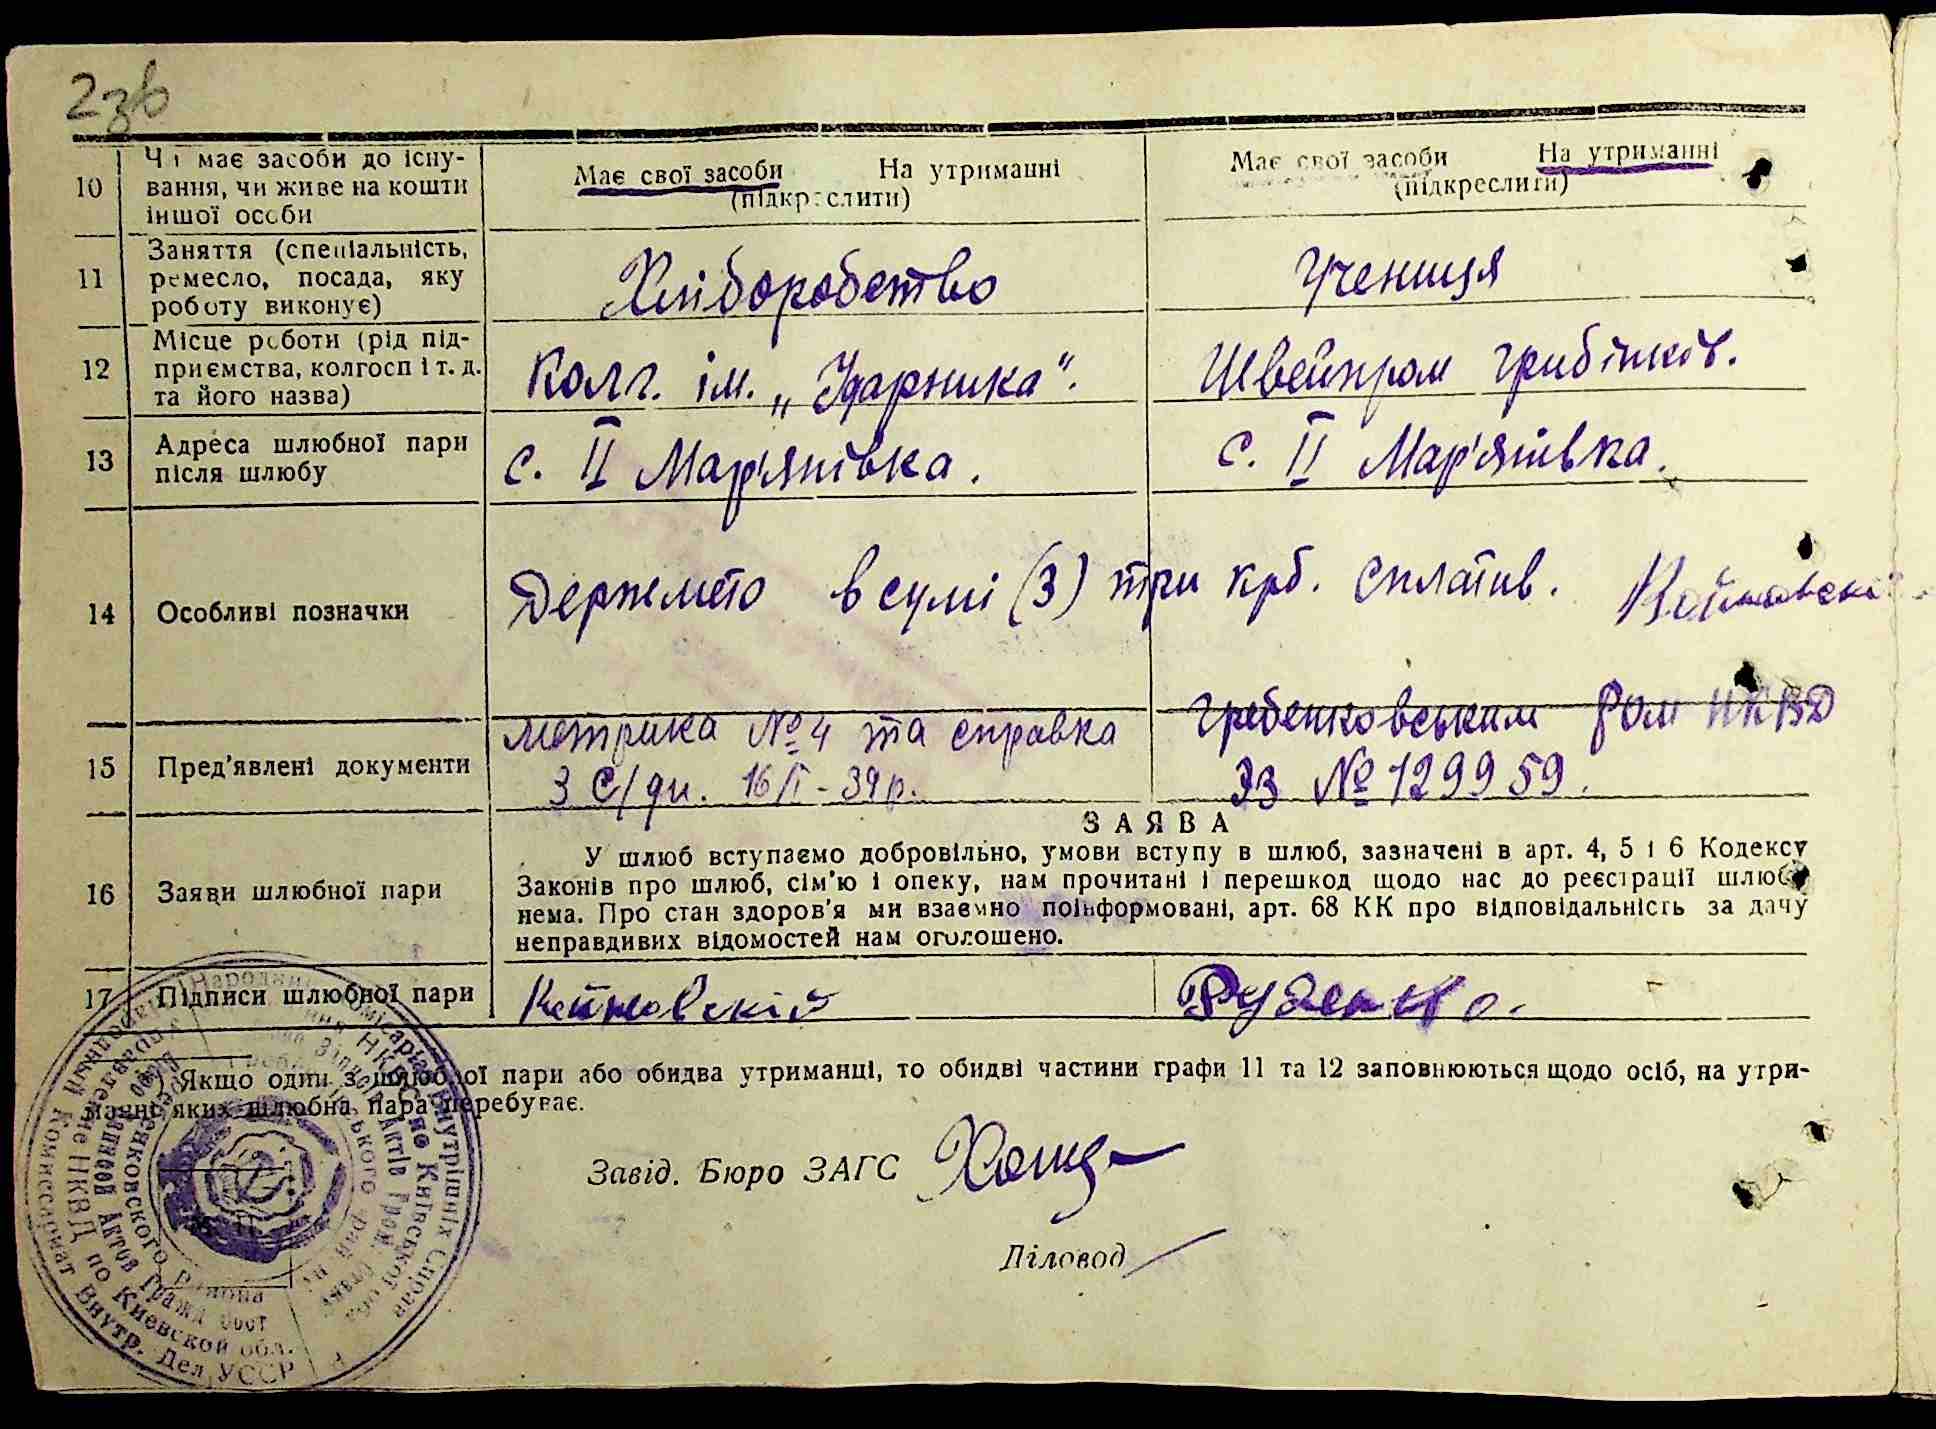 2зв
10 Чи має засоби до існу-
вання, чи живе на кошти
іншої особи
Має свої засоби На утриманні
(підкреслити)
Має свої засоби На утриманні
(підкреслити)
11 Заняття (спеціальність,
ремесло, посада, яку
роботу виконує)
Хліборобство
Учениця
12 Місце роботи (рід під-
приємства, колгосп і т. д.
та його назва)
Колг. ім. „Ударника".
Швейпром
13 Адреса шлюбної пари
після шлюбу
с. II Мар'янівка.
с. II Мар'янівка.
14 Особливі позначки
Держмито в сумі (3) три крб. сплатив.
15 Пред'явлені документи
метрика № 4 та справка
з С/ди. 16/I - 39 р.
Гребенковським Ром НКВД
ЭЗ № 129959.
16 Заяви шлюбної пари
ЗАЯВА
У шлюб вступаємо добровільно, умови вступу в шлюб, зазначені в арт. 4, 5 і 6 Кодексу
Законів про шлюб, сім'ю і опеку, нам прочитані і перешкод щодо нас до реєстрації шлюбу
нема. Про стан здоров'я ми взаємно поінформовані, арт. 68 КК про відповідальність за дачу
неправдивих відомостей нам оголошено.
17 Підписи шлюбної пари
Руденко.
*) Якщо один з шлюбної пари або обидва утриманці, то обидві частини графи 11 та 12 заповнюються щодо осіб, на утри-
манні яких шлюбна пара перебуває.
Завід. Бюро ЗАГС
Діловод
Народний Комісаріат Внутрішніх Справ
Народный Комиссариат Внутр. Дел УССР
Управление НКВД по Киевской обл.